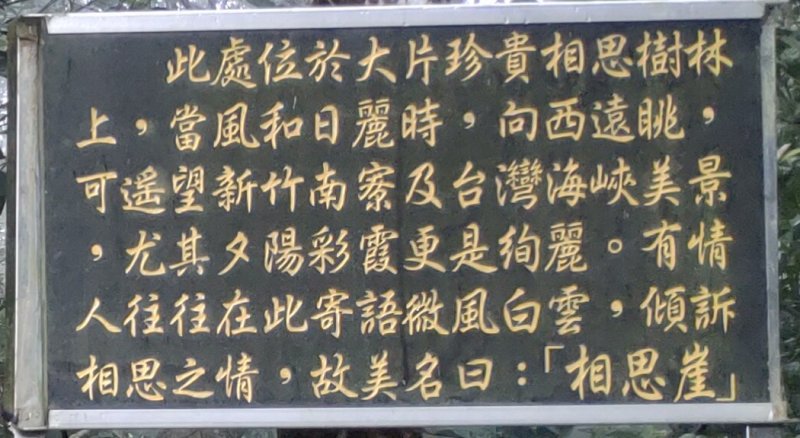 此處位於大片珍貴相思樹林
上，當風和日麗時，向西遠眺，
可遥望新竹南寮及台灣海峽美景
，尤其夕陽彩霞更是絢麗。有情
人往往在此寄語微風白雲，傾訴
相思之情，故美名曰：「相思崖」